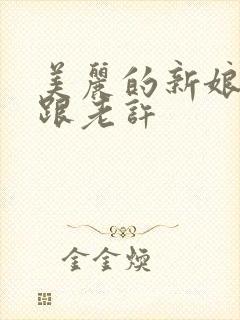 美麗的新娘
跟老許
金金煥